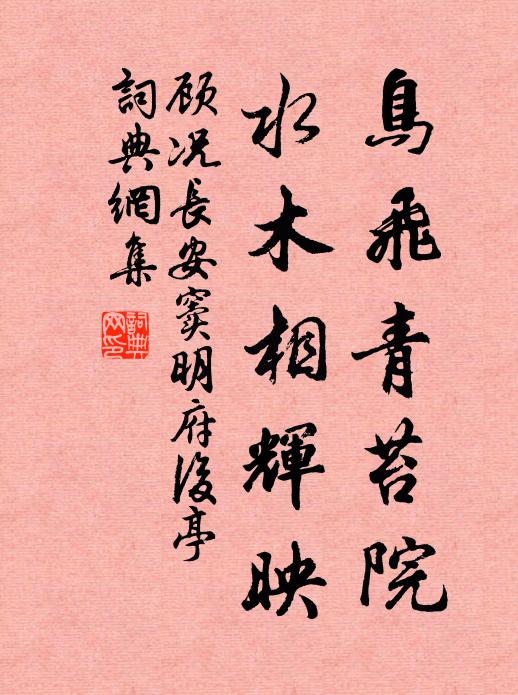 鳥飛青苔院
水木相輝映
顾况長安竇明府後亭
詞典網集
詞典网印